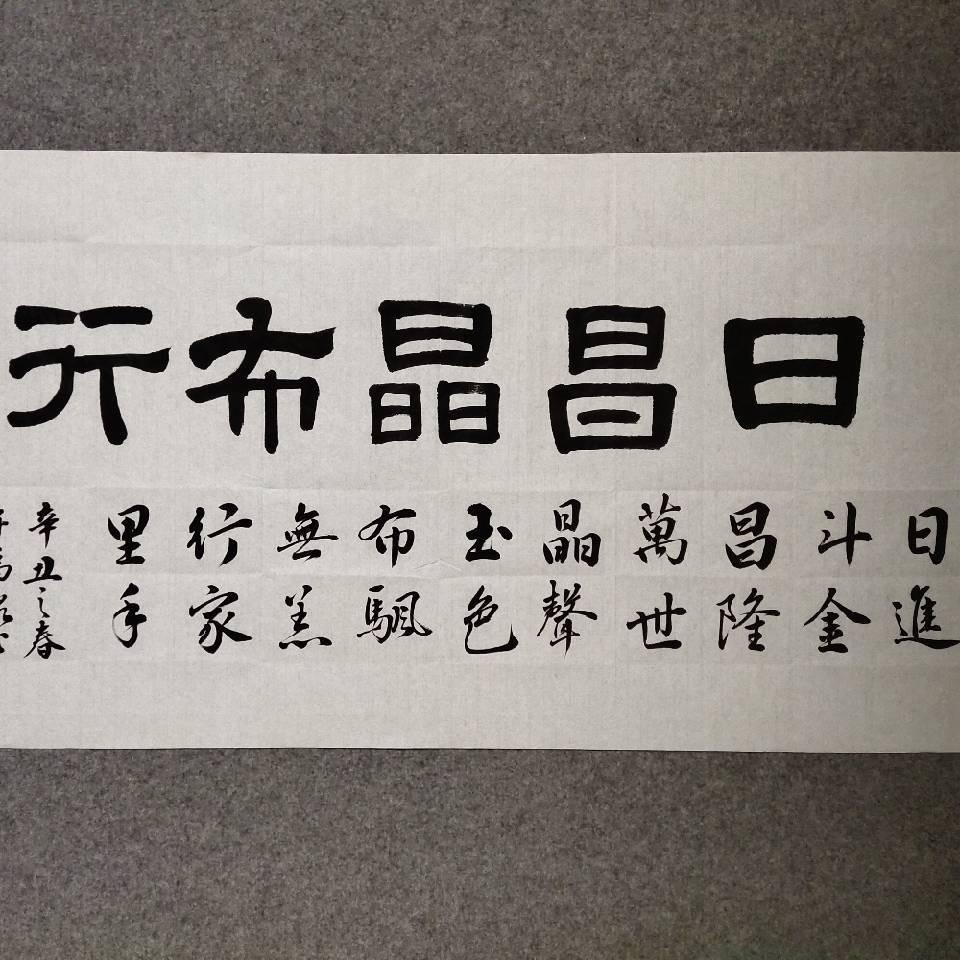 日昌晶布行
日進
斗金
昌隆
萬世
晶聲
玉色
布颿
無恙
行家
里手
辛丑之春